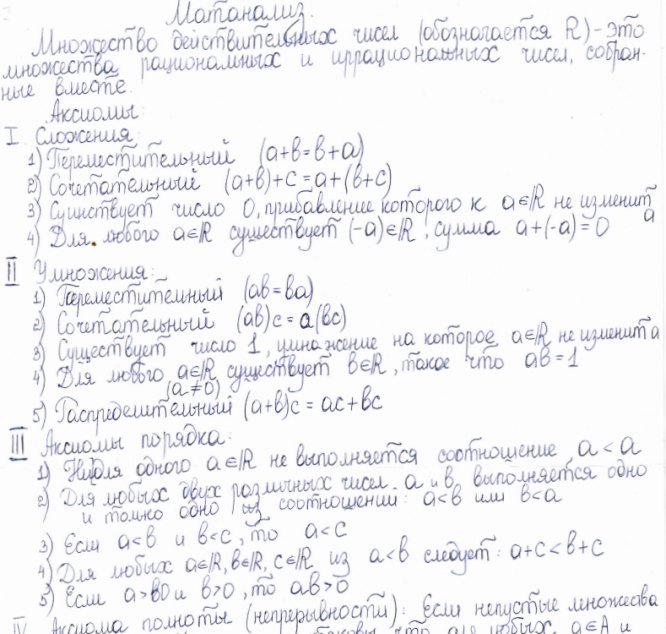 Матанализ.
Множество действительных чисел (обозначается R) - это
множества рациональных и иррациональных чисел, собран-
ные вместе.
Аксиомы:
I Сложения:
1) Переместительный (a+b=b+a)
2) Сочетательный (a+b)+c=a+(b+c)
3) Существует число 0, прибавление которого к a∈R не изменит a
4) Для любого a∈R существует (-a)∈R, сумма a+(-a)=0
II Умножения:
1) Переместительный (ab=ba)
2) Сочетательный (ab)c=a(bc)
3) Существует число 1, умножение на которое a∈R не изменит a
4) Для любого a∈R существует b∈R, такое что ab=1
(a≠0)
5) Распределительный (a+b)c=ac+bc
III Аксиомы порядка:
1) Ни для одного a∈R не выполняется соотношение a<a
2) Для любых двух различных чисел a и b выполняется одно
и только одно из соотношений: a<b или b<a
3) Если a<b и b<c, то a<c
4) Для любых a∈R, b∈R, c∈R из a<b следует: a+c<b+c
5) Если a>0 и b>0, то ab>0
IV Аксиома полноты (непрерывности): Если непустые множества
таковы, что для любых a∈A и